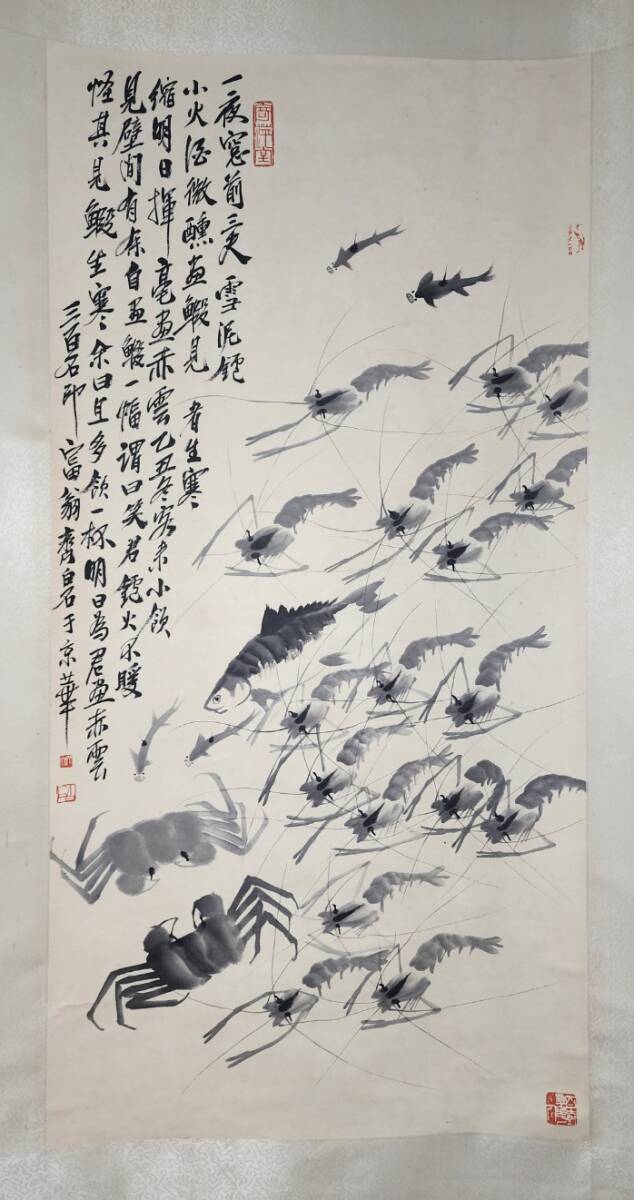 一夜窓前三尺雪泥鑪
小火酒微醺畫鰕見者生寒
縮明日揮毫畫赤雲乙丑冬客来小飲
見壁間有余自畫鰕一幅謂曰笑君鑪火不暖
怪其見鰕生寒余曰且多飲一杯明日為君畫赤雲
三百石印富翁齊白石于京華